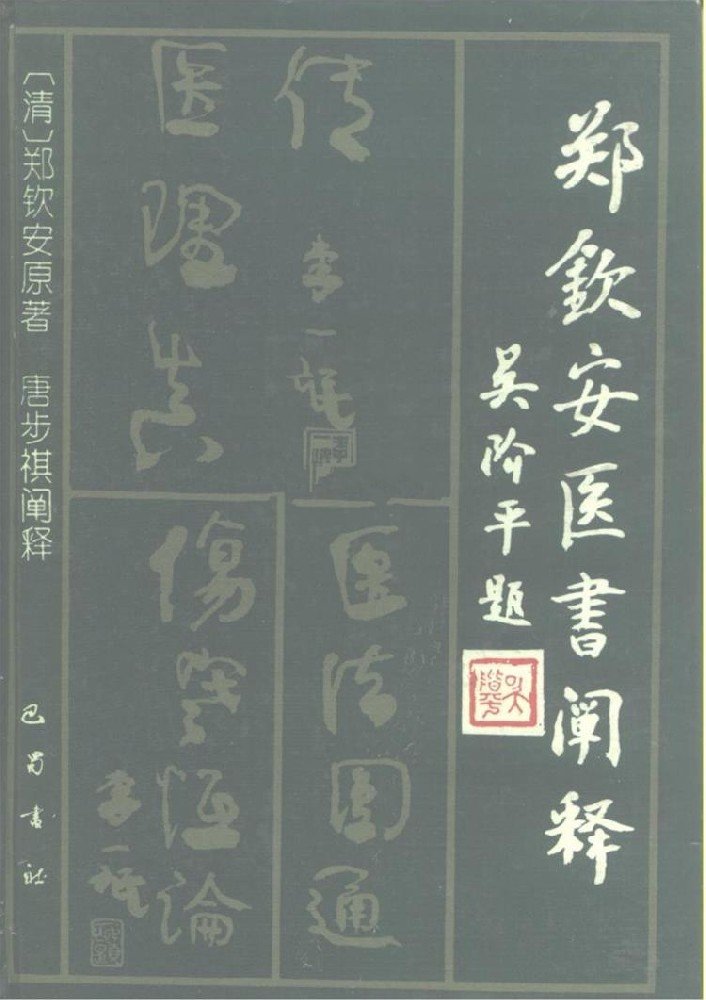 郑欽安医書阐释
吴阶平题
医理真
传
李一氓
医法圓通
傷寒恒論
李一氓
〔清〕郑钦安原著 唐步祺阐释
巴蜀書社